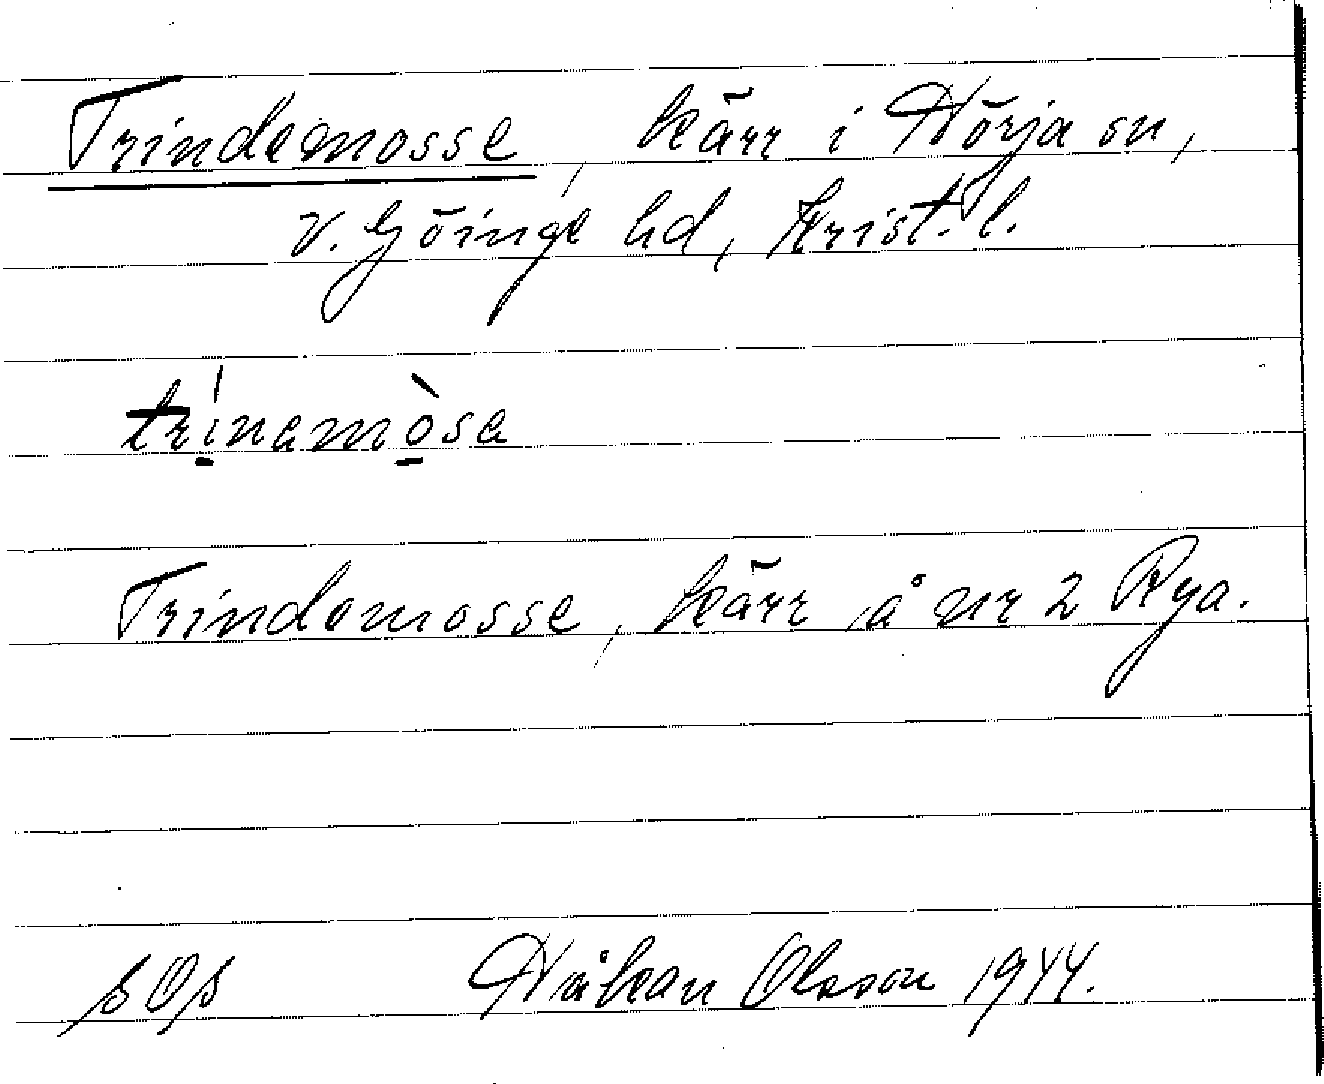 Trindemosse, kärr i Hörja sn,
V. Göinge hd, Krist. l.
trínamòsa
Trindemosse, kärr å nr 2 Rya.
sOs Håkan Olsson 1944.